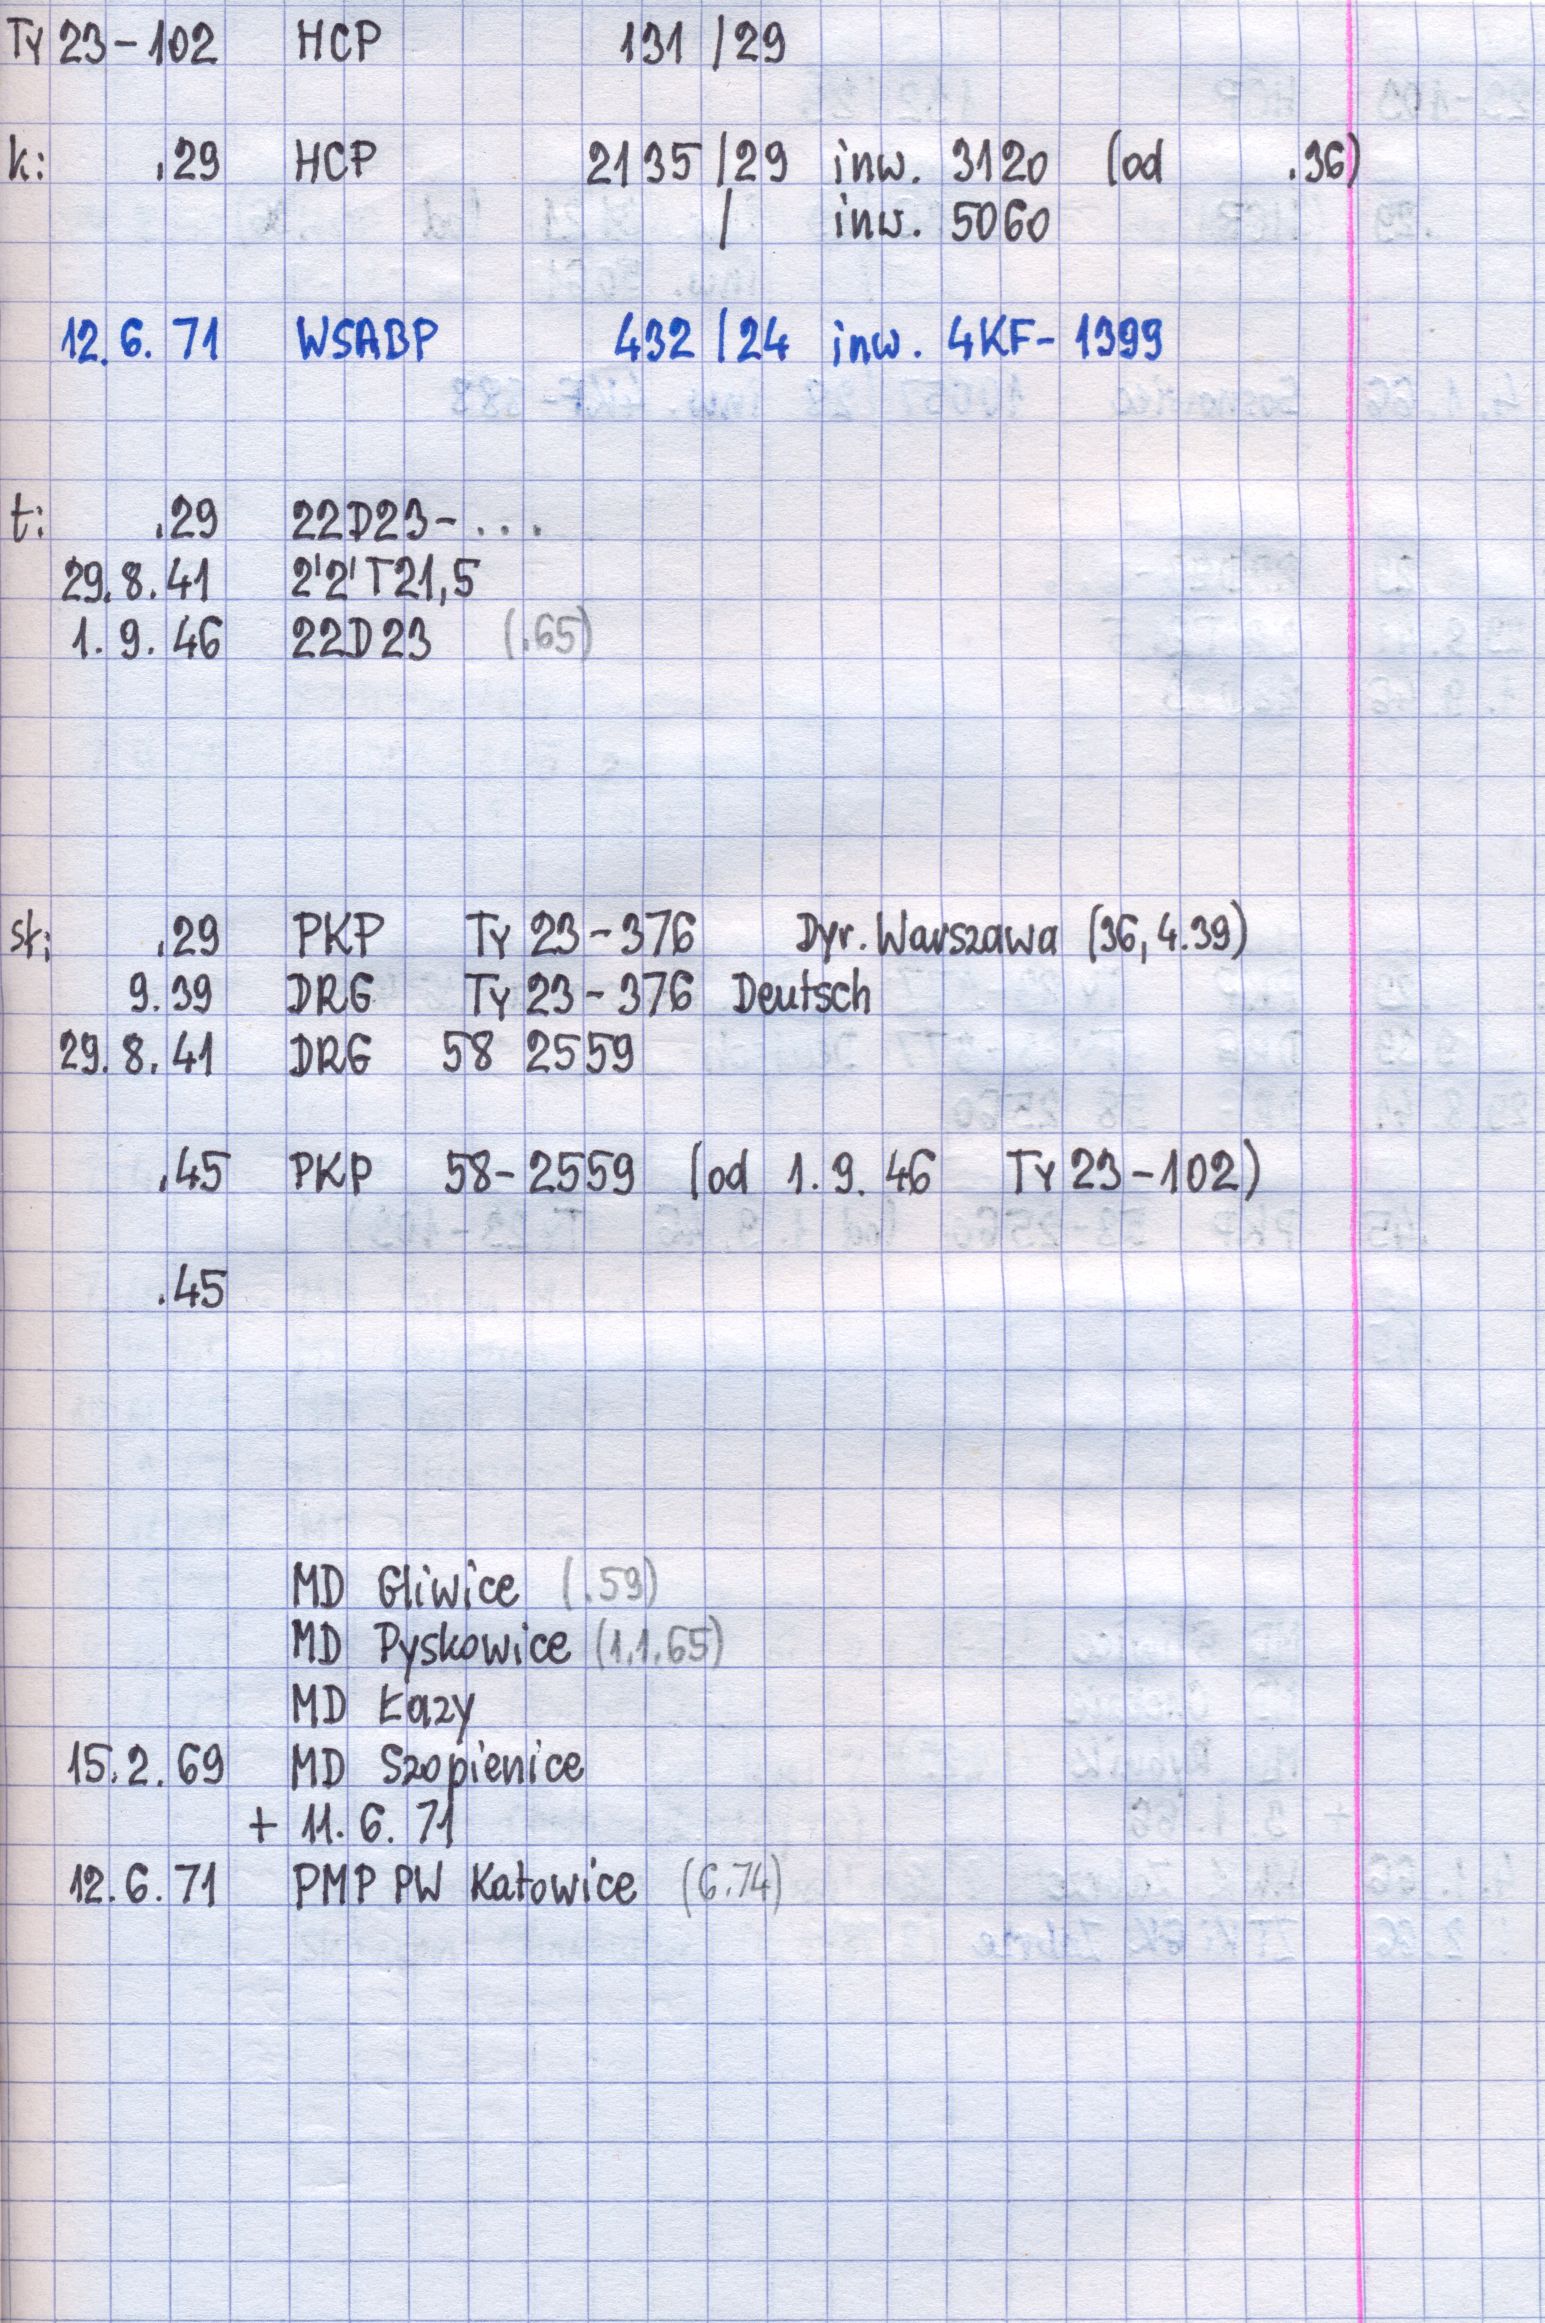 Ty 23-102 HCP 131 /29
k: .29 HCP 2135 /29 inw. 3120 (od .36)
/ inw. 5060
12.6.71 WSABP 432 /24 inw. 4KF-1399
t: .29 22D23-...
29.8.41 2'2'T21,5
1.9.46 22D23 (.65)
sł: .29 PKP Ty 23-376 Dyr. Warszawa (36, 4.39)
9.39 DRG Ty 23-376 Deutsch
29.8.41 DRG 58 2559
.45 PKP 58-2559 (od 1.9.46 Ty 23-102)
.45
MD Gliwice (.59)
MD Pyskowice (1.1.65)
MD Łazy
15.2.69 MD Szopienice
+ 11.6.71
12.6.71 PMP PW Katowice (6.74)